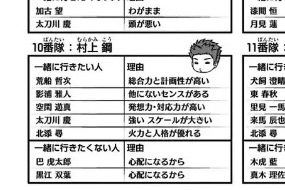 加古 望 わがまま
太刀川 慶 頭が悪い
ばんたい むらかみ こう
10番隊：村上 鋼
一緒に行きたい人 理由
荒船 哲次 総合力と計画性が高い
影浦 雅人 他にないセンスがある
空閑 遊真 発想力・対応力が高い
太刀川 慶 強い スケールが大きい
北添 尋 火力と人格が優れる
一緒に行きたくない人 理由
巴 虎太郎 心配になるから
黒江 双葉 心配になるから
漆間 恒
月見 蓮
ばんたい
11番隊：
一緒に行
犬飼 澄晴
東 春秋
里見 一馬
来馬 辰也
北添 尋
一緒に行
木虎 藍
真木 理佐